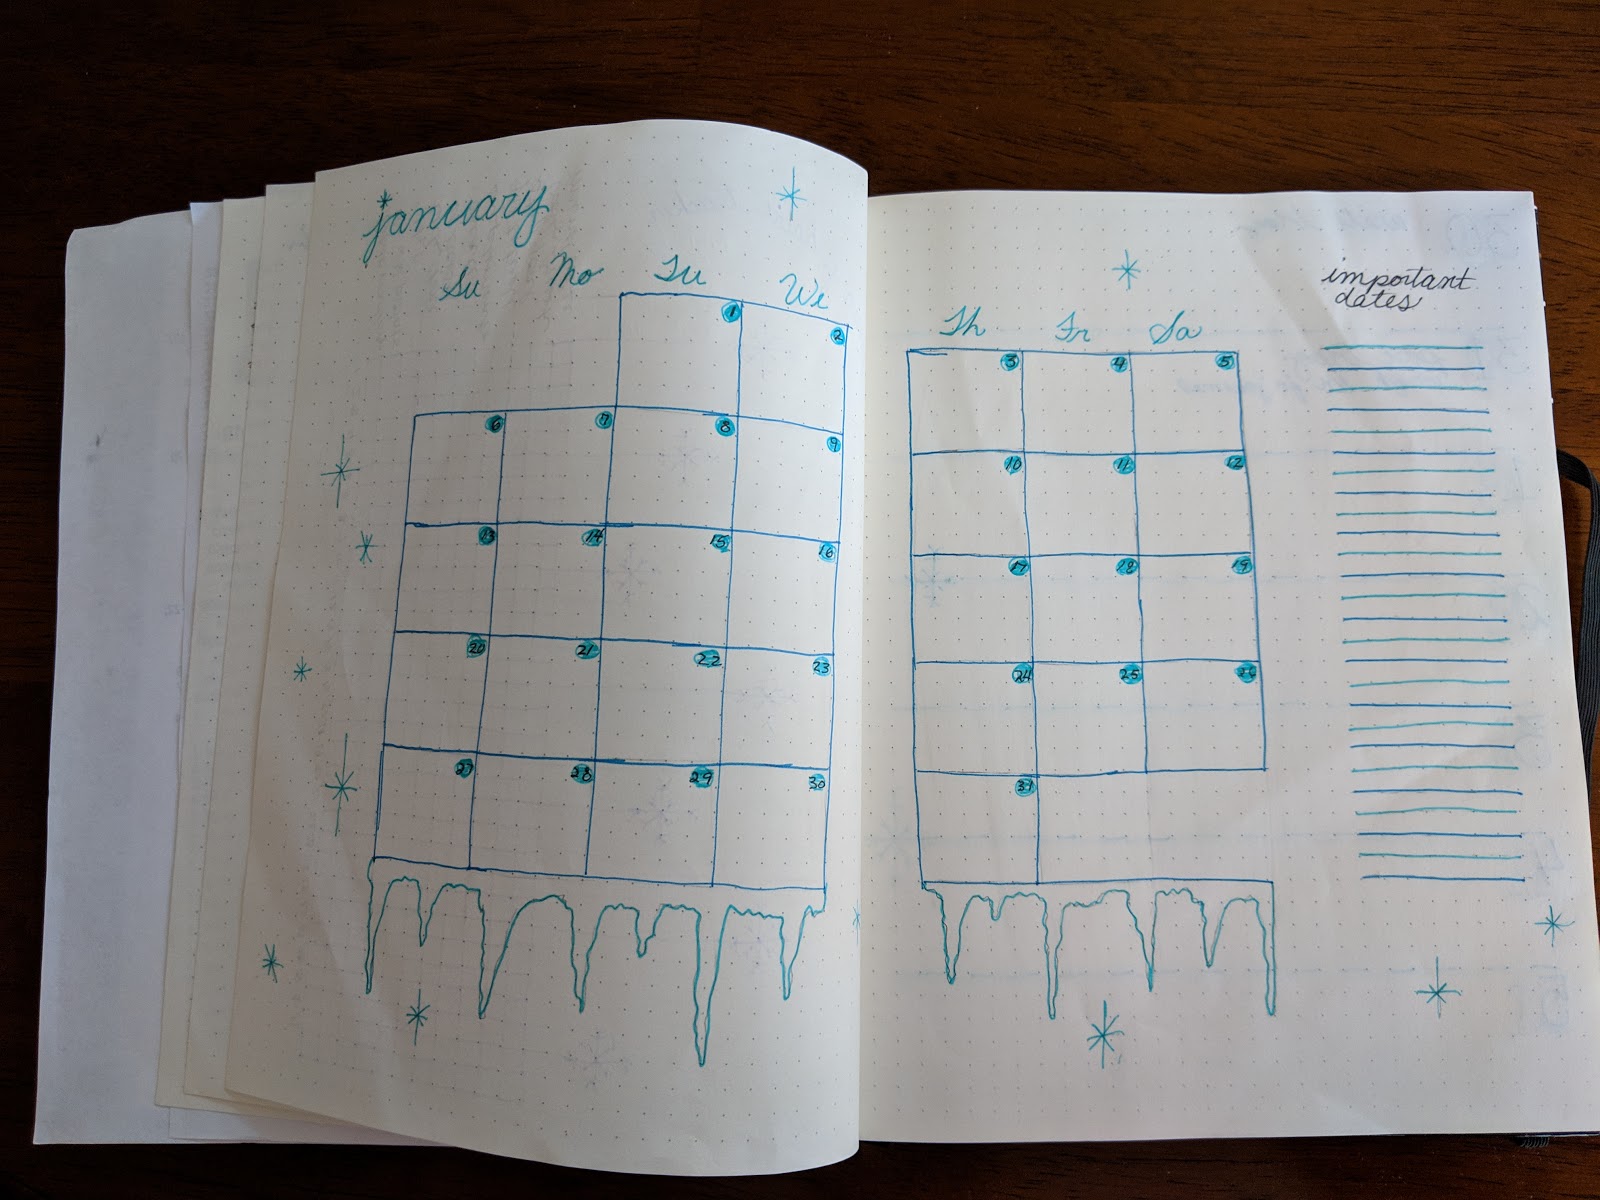 january
Su Mo Tu We
1 2
6 7 8 9
13 14 15 16
20 21 22 23
27 28 29 30
Th Fr Sa
3 4 5
10 11 12
17 18 19
24 25 26
31
important
dates